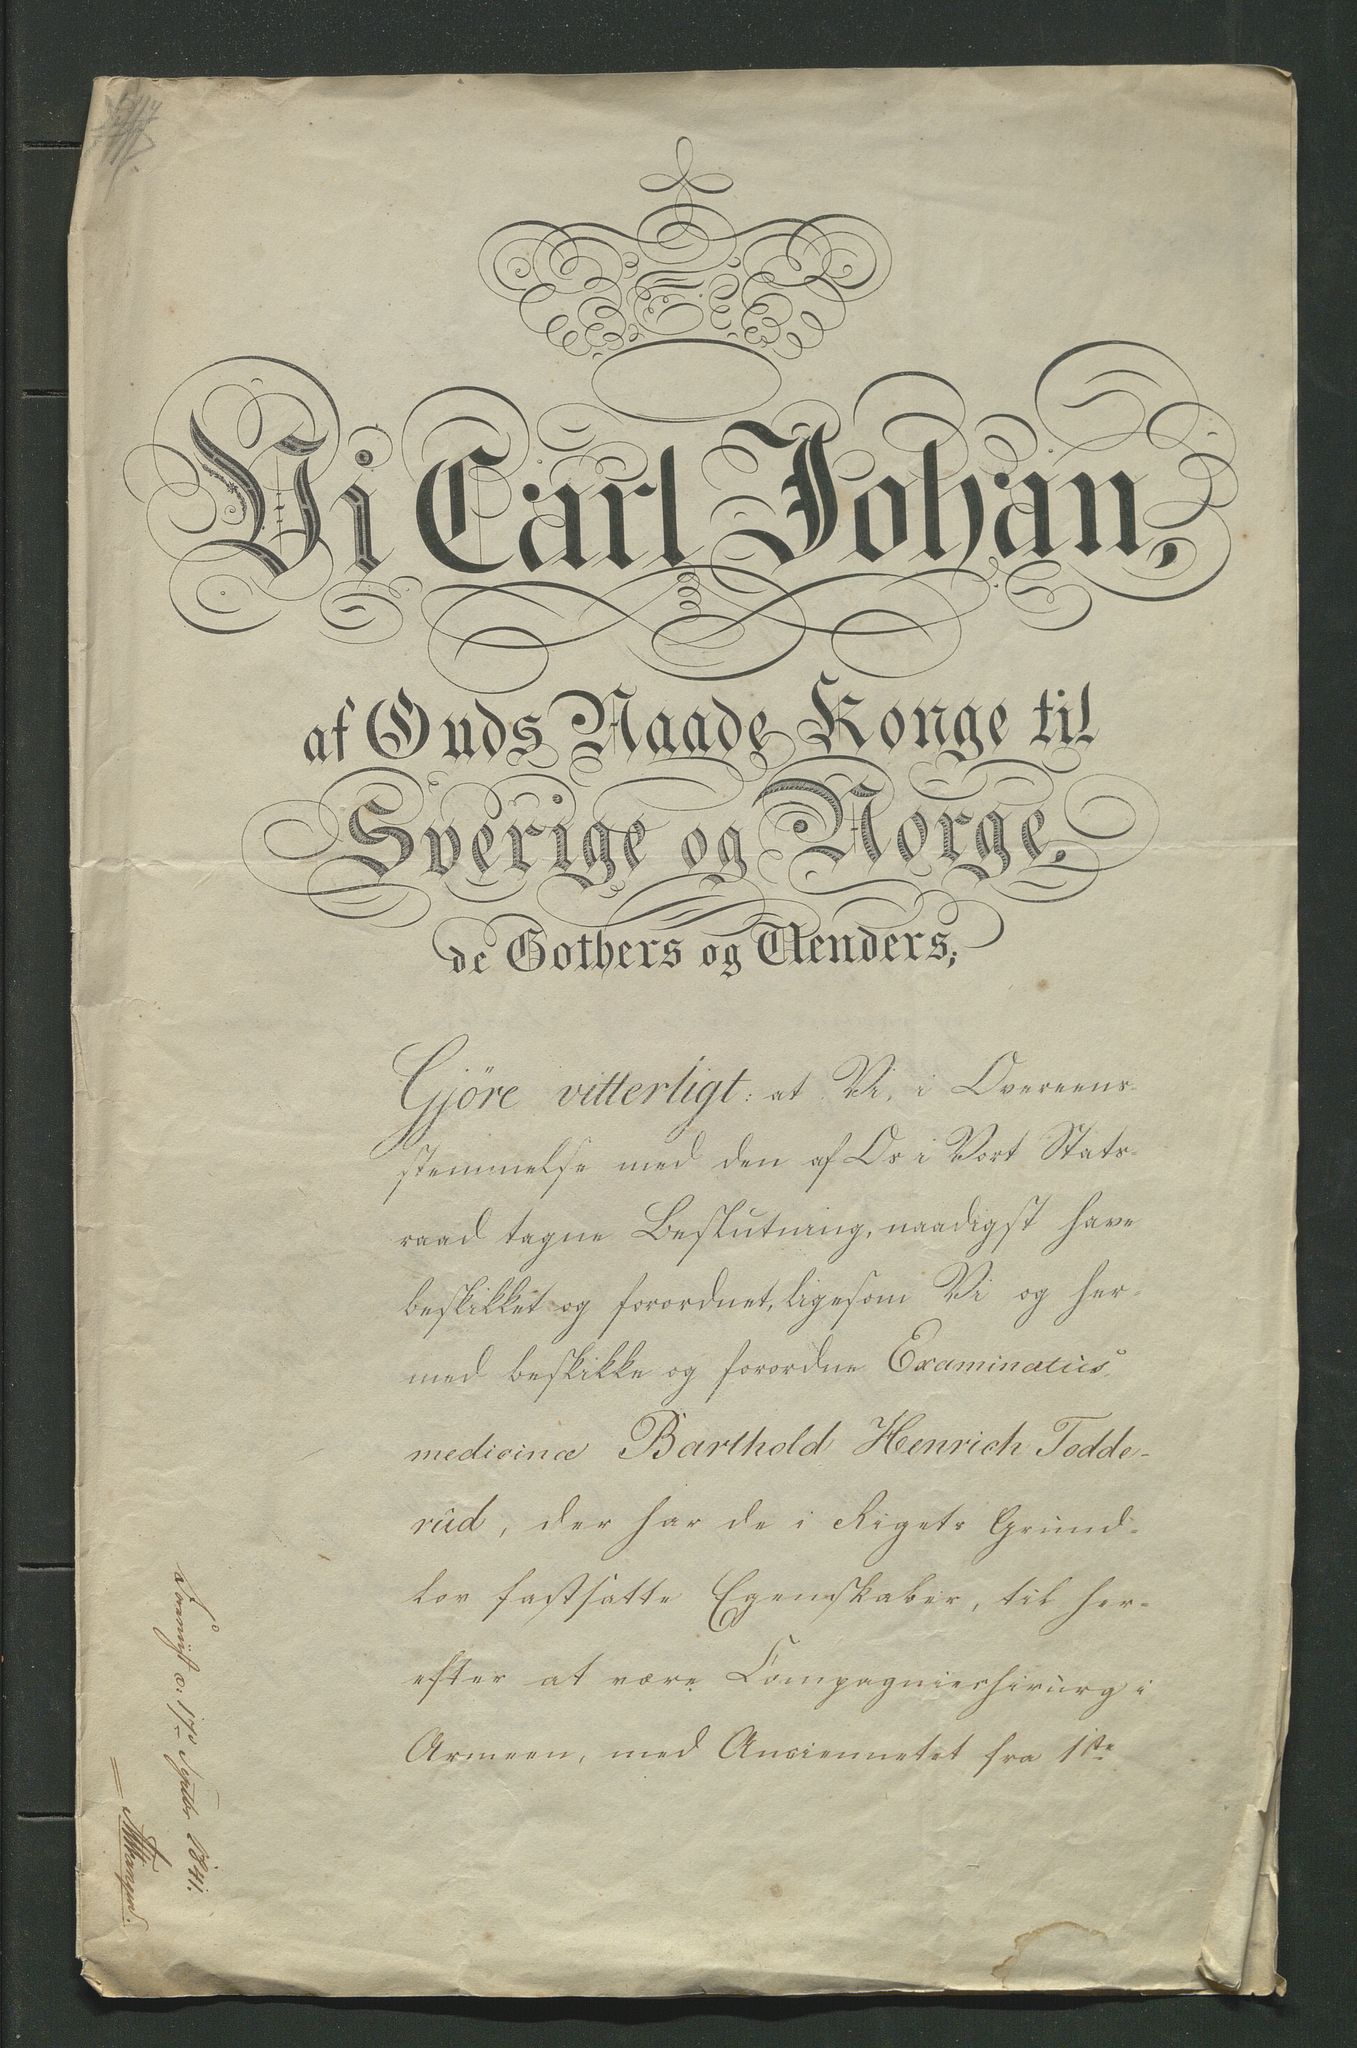 Vi Carl Johan,
af Guds Naade Konge til
Sverige og Norge,
de Gothers og Venders;
Gjöre vitterligt: at Vi, i Overeens-
stemmelse med den af Os i Vort Stats-
raad tagne Beslutning, naadigst have
beskikket og forordnet, ligesom Vi og her-
med beskikke og forordne Examinatus
medicinæ Barthold Henrich Todde-
rud, der har de i Rigets Grund-
lov fastsatte Egenskaber, til her-
efter at være Compagniechirurg i
Armeen, med Anciennetet fra 1ste
17de Septbr 1841.